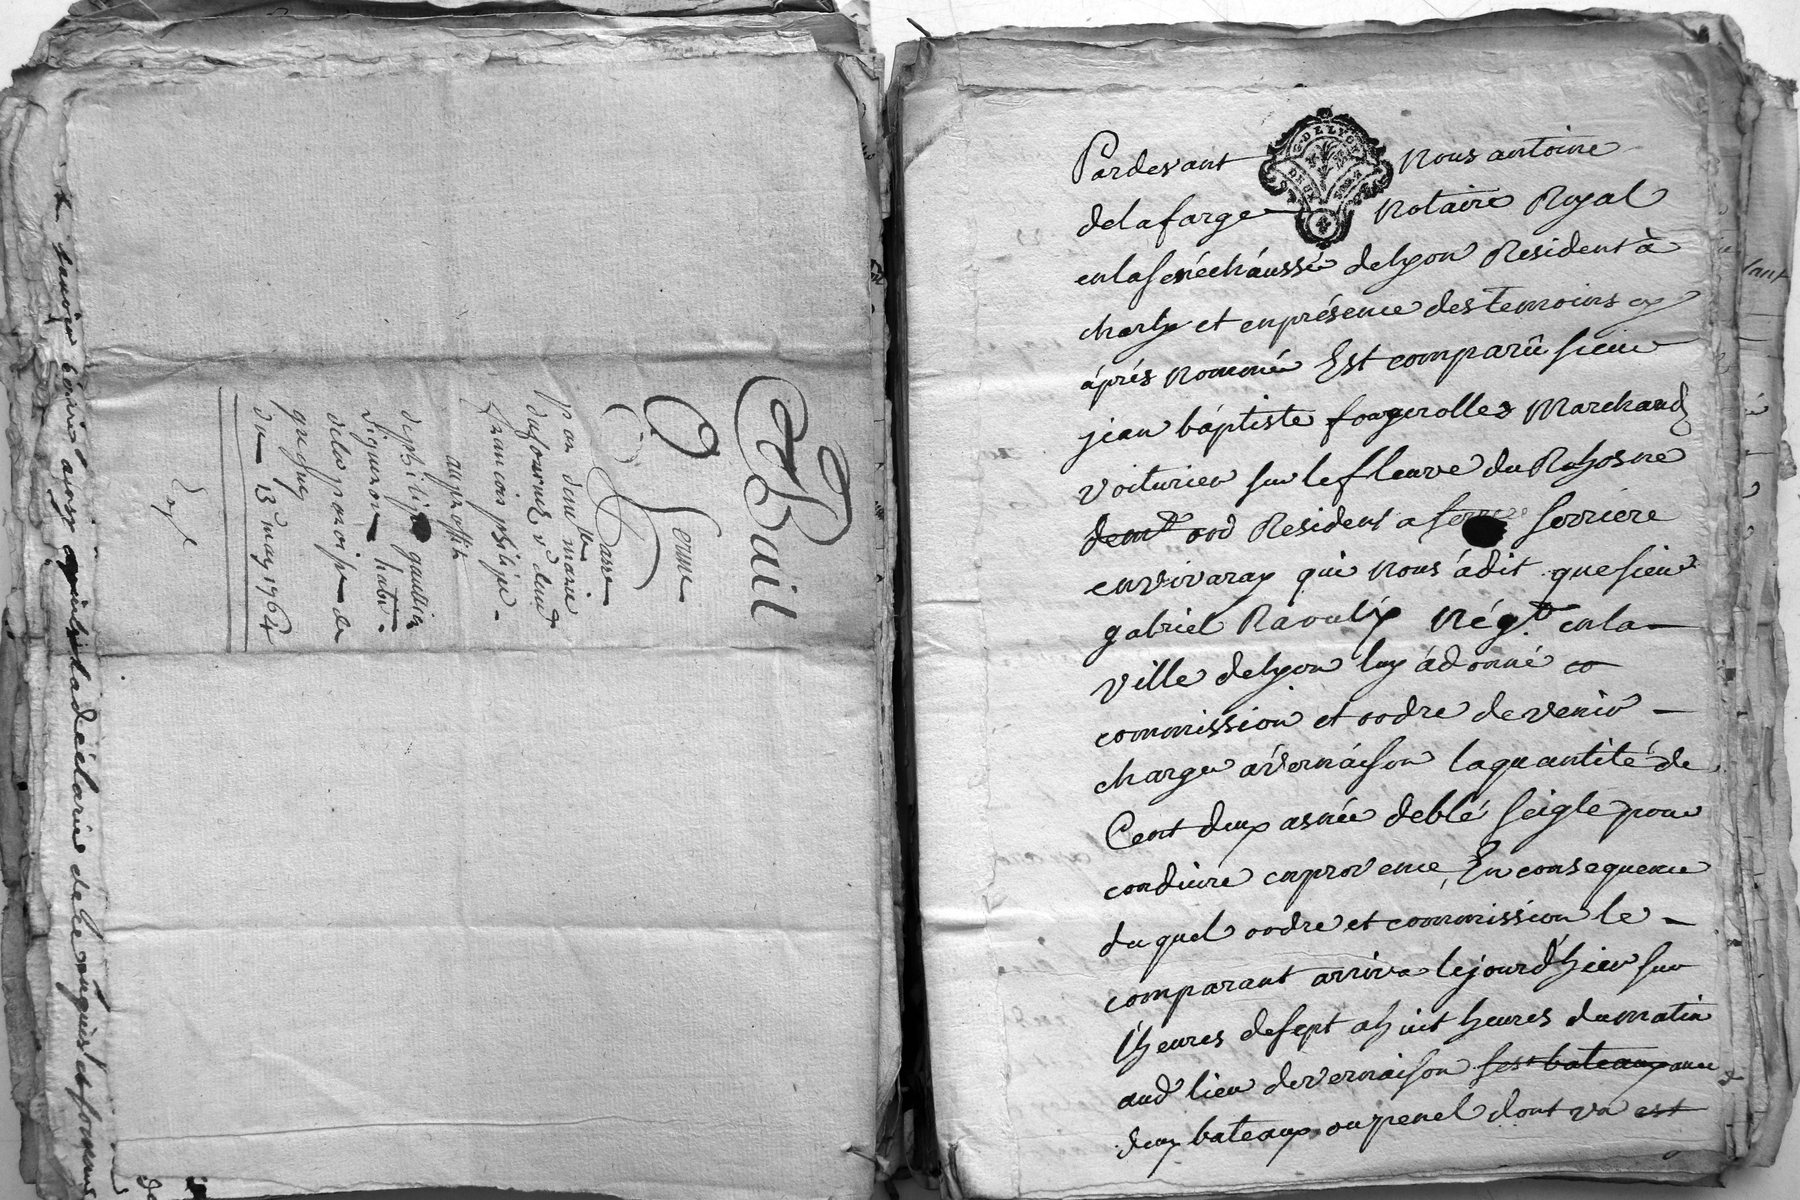 Bail
a ferme
passé
par dem.lle marie
dufournel v. de
francois philipe
au proffit
de philipe gaudin
vigneron habt.
de la paroisse de
du 13e may 1764
G. DE LYON
Pardevant nous antoine
delafarge notaire Royal
en la sénéchaussée de lyon Resident à
charly et en présence des temoins cy
áprés nommé Est comparû sieur
jean báptiste fougerolles Marchand
voiturier sur le fleuve du Rhosne
demt. ord Resident a serriere serriere
en vivarax qui nous á dit que sieur
gabriel Ravoulx Négt. en la
ville de lyon luy á donné
commission et ordre de venir
charger á vernáison la quantité de
Cent deux asnée de blé seigle pour
conduire en provence, En consequence
du quel ordre et commission le
comparant arriva le jourd'hier sur
l'heures de sept a huit heures du matin
aud lieu de vernaison ses bateaux avec
deux bateaux ou penel dont un est